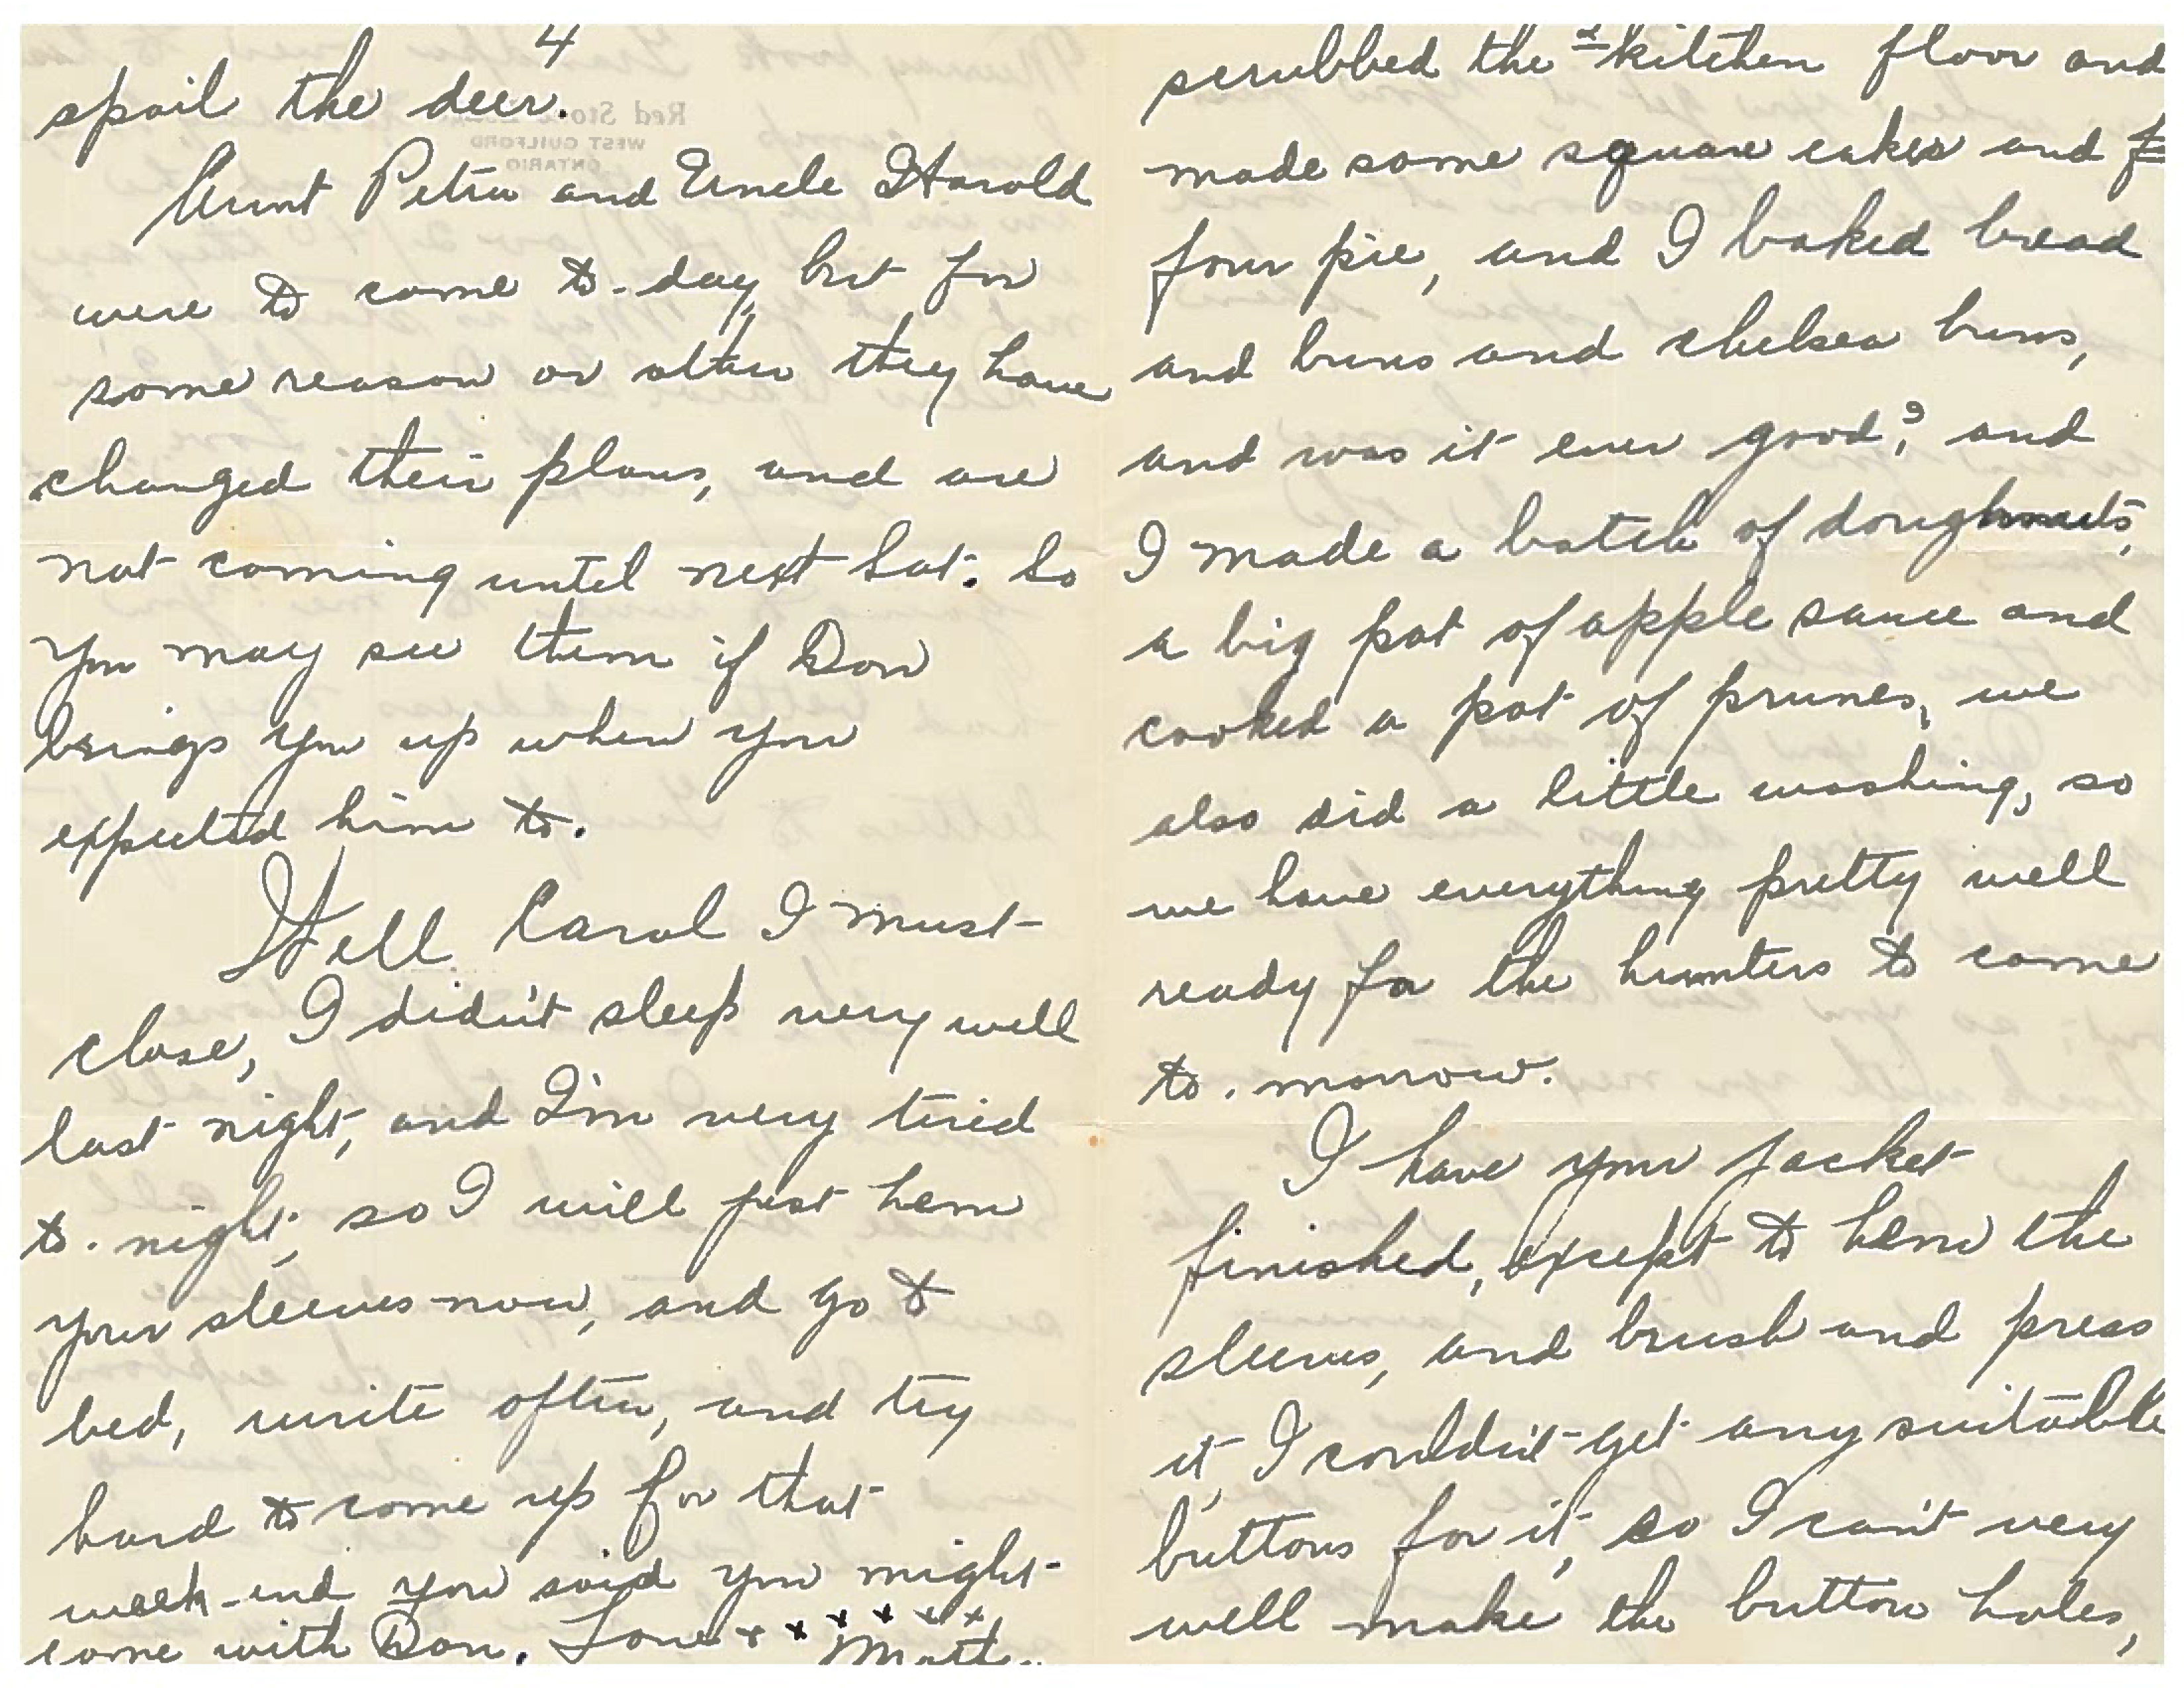 4
spoil the deer.
Aunt Petra and Uncle Harold
were to come to-day, but for
some reason or other they have
changed their plans, and are
not coming until next Sat. So
you may see them if Don
brings you up when you
expected him to.
Well Carol I must
close, I didn't sleep very well
last night, and I'm very tired
to-night, so I will just hem
your sleeves now, and go to
bed, write often, and try
hard to come up for that
week-end you said you might
come with Don. Love x x x x x x
Mother
2
scrubbed the kitchen floor and
made some square cakes and f
four pie, and I baked bread
and buns and chelsea buns,
and was it ever good? and
I made a batch of doughnuts,
a big pot of apple sauce and
cooked a pot of prunes, we
also did a little washing, so
we have everything pretty well
ready for the hunters to come
to-morrow.
I have your jacket
finished, except to hem the
sleeves, and brush and press
it, I couldn't get any suitable
buttons for it, so I can't very
well make the button holes,